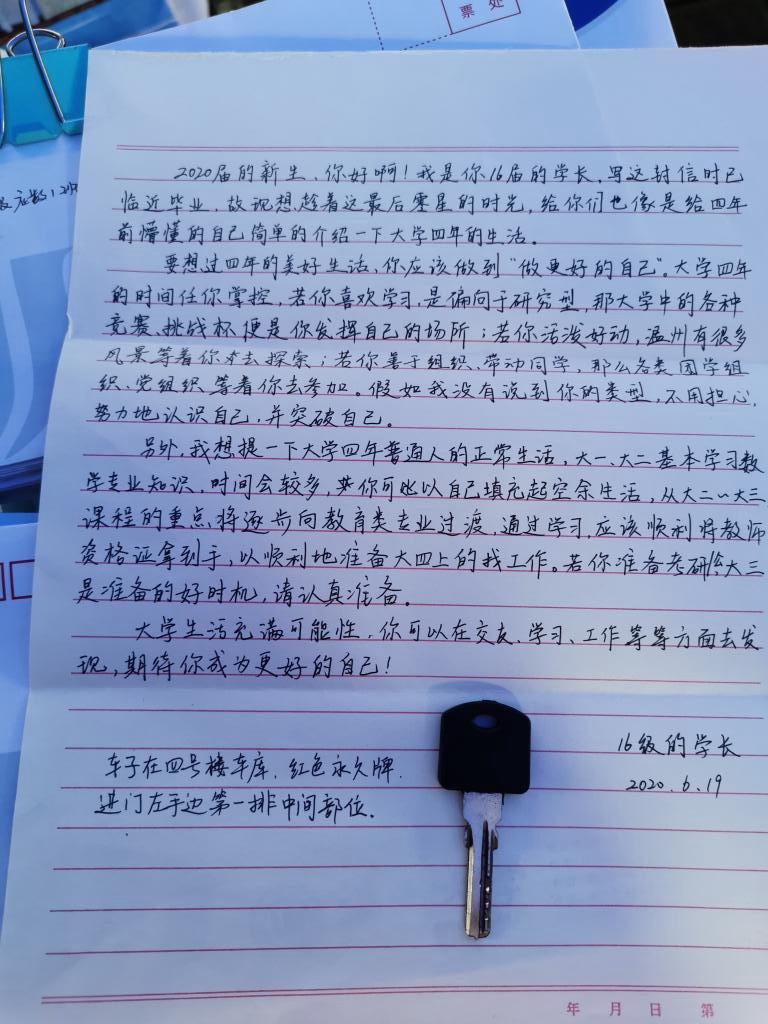 票处
2020届的新生、你好啊！我是你16届的学长，写这封信时已
临近毕业，故现想趁着这最后零星的时光，给你们也像是给四年
前懵懂的自己简单的介绍一下大学四年的生活。
要想过四年的美好生活，你应该做到“做更好的自己”。大学四年
的时间任你掌控，若你喜欢学习，是偏向于研究型，那大学中的各种
竞赛、挑战杯便是你发挥自己的场所；若你活泼好动，温州有很多
风景等着你去探索；若你善于组织、带动同学，那么各类团学组
织、党组织等着你去参加。假如我没有说到你的类型，不用担心，
努力地认识自己，并突破自己。
另外，我想提一下大学四年普通人的正常生活，大一、大二基本学习数
学专业知识，时间会较多，你可以自己填充起空余生活，从大二～大三
课程的重点将逐步向教育类专业过渡，通过学习，应该顺利将教师
资格证拿到手，以顺利地准备大四上的找工作。若你准备考研，大三
是准备的好时机，请认真准备。
大学生活充满可能性，你可以在交友、学习、工作等等方面去发
现，期待你成为更好的自己！
16级的学长
2020.6.19
车子在四号楼车库，红色永久牌，
进门左手边第一排中间部位。
年 月 日 第